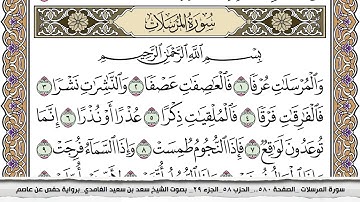 سُورَةُ المُرۡسَلَاتِ
بِسۡمِ ٱللَّهِ ٱلرَّحۡمَٰنِ ٱلرَّحِيمِ
وَٱلۡمُرۡسَلَٰتِ عُرۡفٗا ١ فَٱلۡعَٰصِفَٰتِ عَصۡفٗا ٢ وَٱلنَّٰشِرَٰتِ نَشۡرٗا ٣
فَٱلۡفَٰرِقَٰتِ فَرۡقٗا ٤ فَٱلۡمُلۡقِيَٰتِ ذِكۡرًا ٥ عُذۡرًا أَوۡ نُذۡرًا ٦ إِنَّمَا
تُوعَدُونَ لَوَٰقِعٞ ٧ فَإِذَا ٱلنُّجُومُ طُمِسَتۡ ٨ وَإِذَا ٱلسَّمَآءُ فُرِجَتۡ ٩
سورة المرسلات _الصفحة ٥٨٠_ الحزب ٥٨_الجزء ٢٩_ بصوت الشيخ سعد بن سعيد الغامدي _برواية حفص عن عاصم